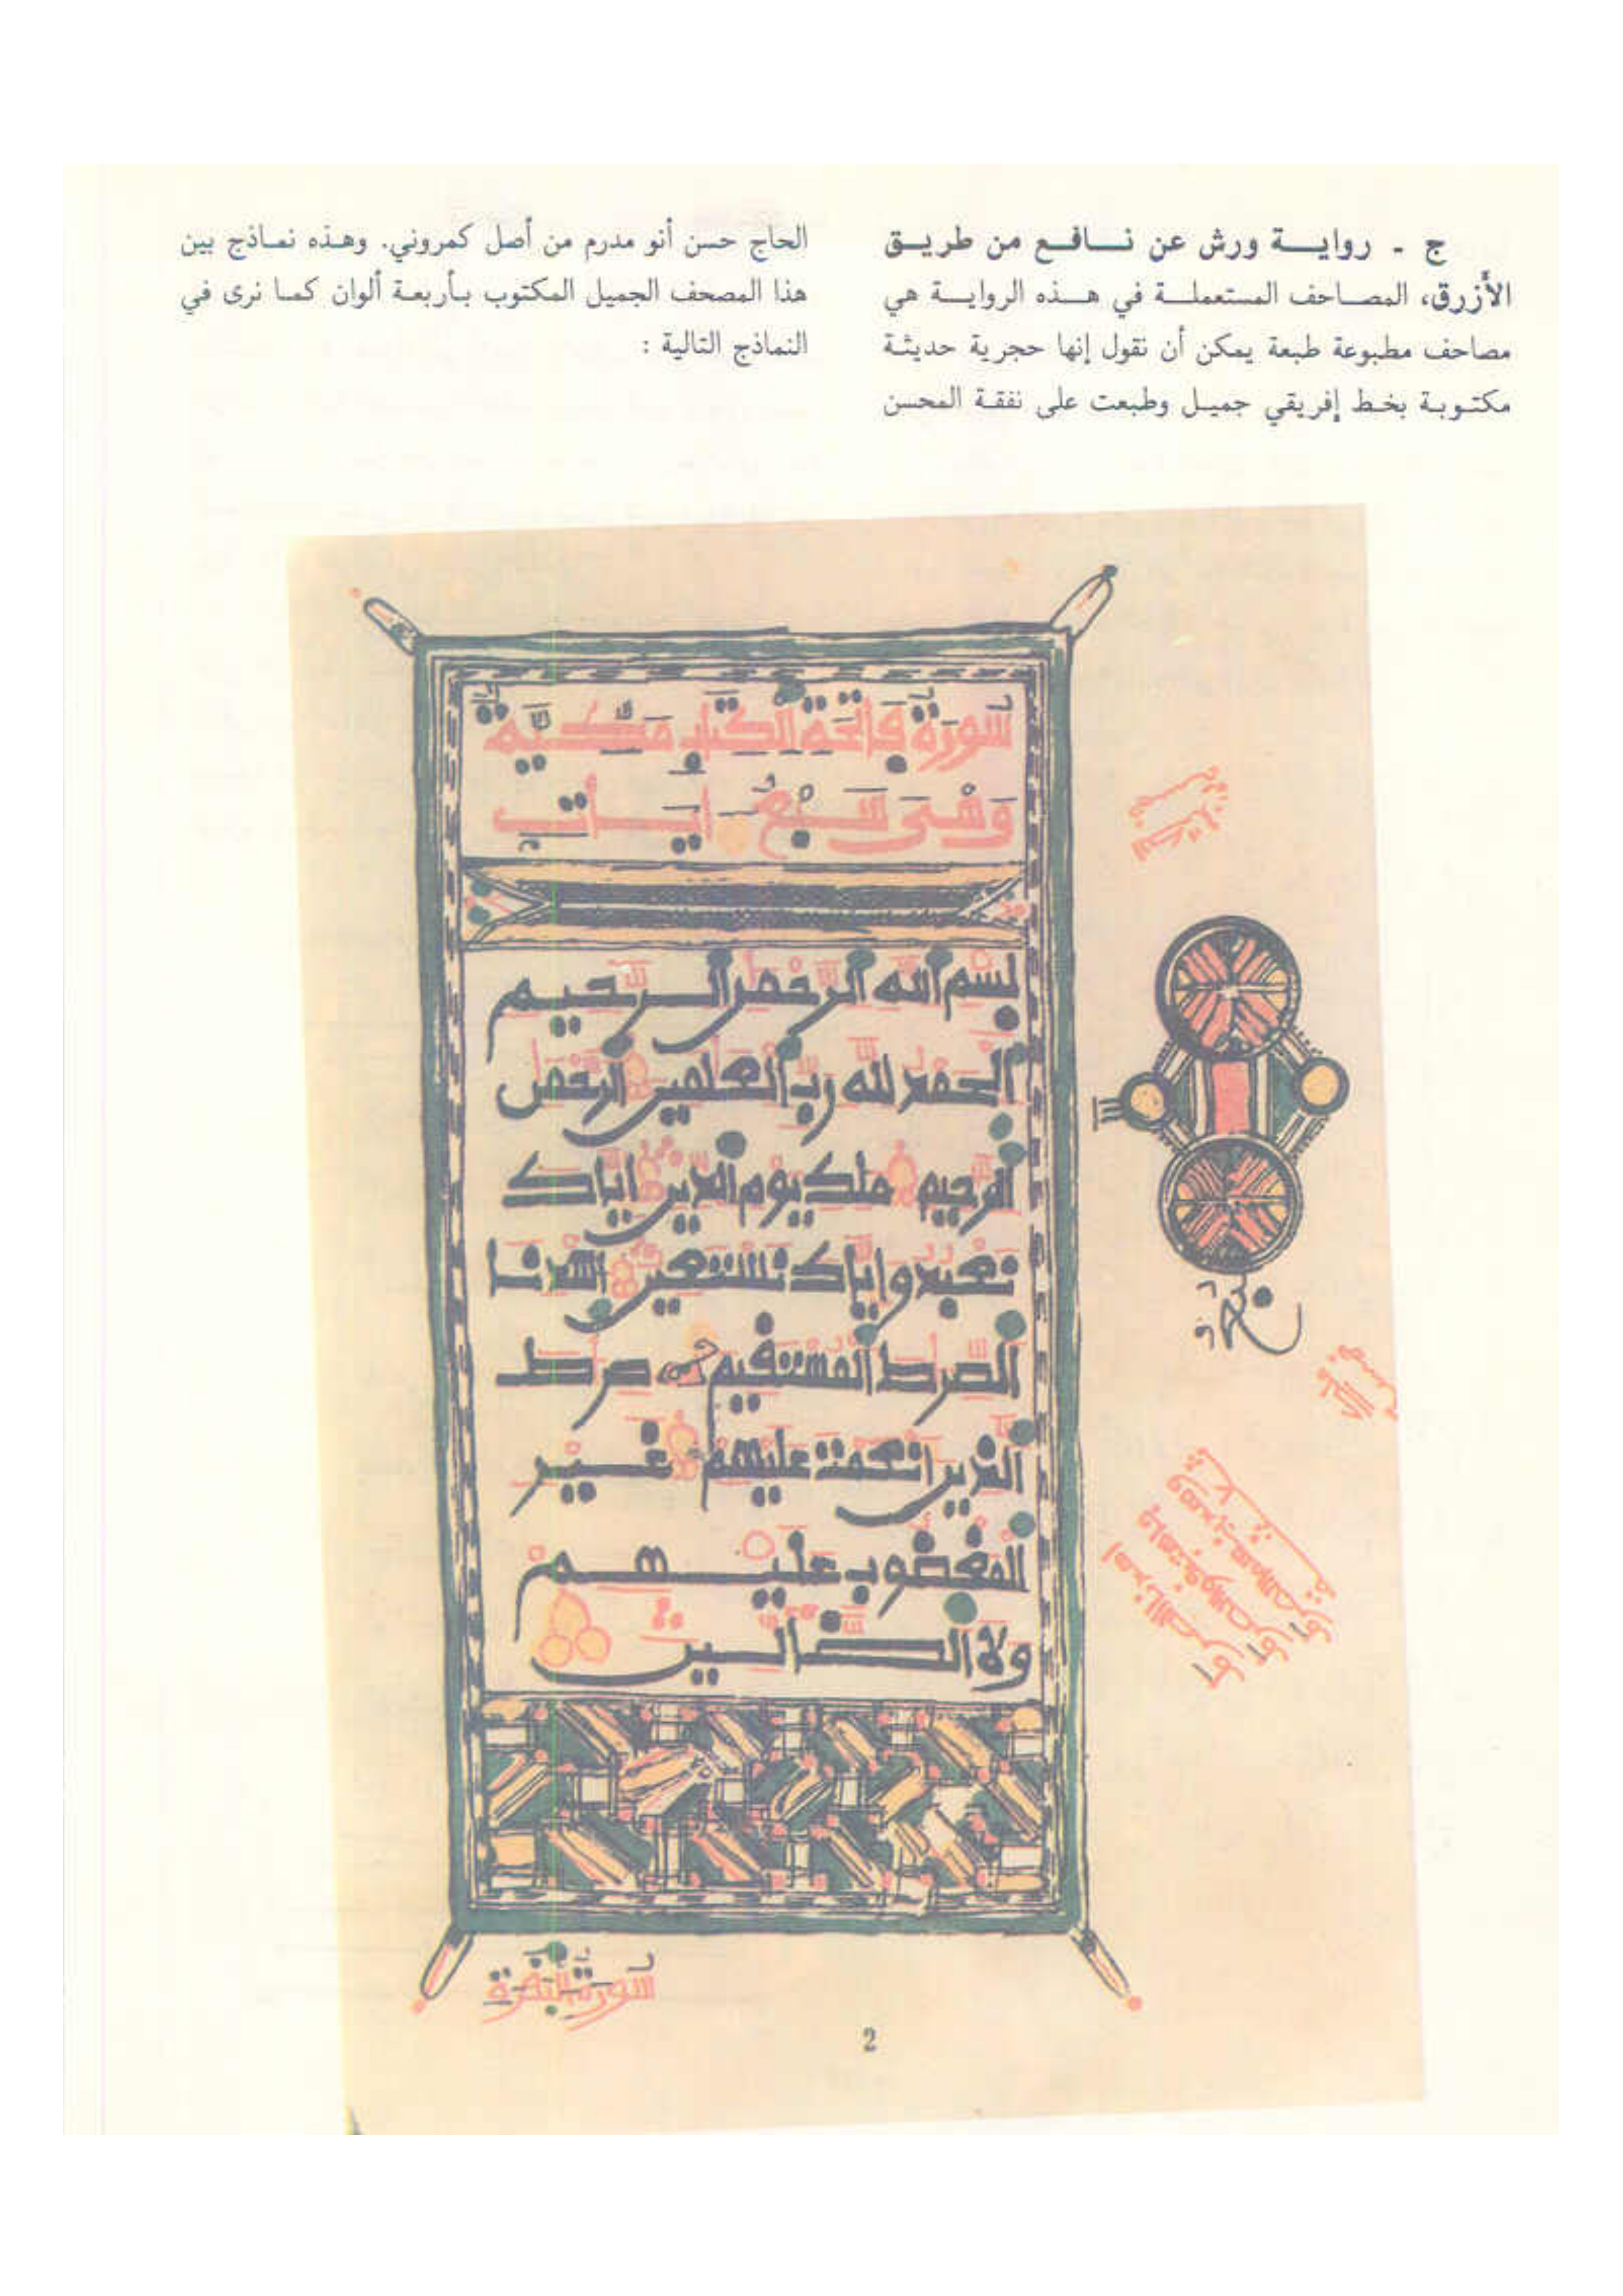 ج - روايـــة ورش عن نـــافـــع من طريـــق
الأزرق، المصـــاحف المستعملـــة في هـــذه الروايـــة هي
مصاحف مطبوعة طبعة يمكن أن نقول إنها حجرية حديثة
مكتوبة بخط إفريقي جميل وطبعت على نفقة المحسن
الحاج حسن أنو مدرم من أصل كمروني. وهذه نماذج بين
هذا المصحف الجميل المكتوب بأربعة ألوان كما نرى في
النماذج التالية :
سورة فاتحة الكتاب مكية
وهي سبع ءايات
بسم الله الرحمن الرحيم
الحمد لله رب العلمين الرحمن
الرحيم ملك يوم الدين اياك
نعبد واياك نستعين اهدنا
الصرط المستقيم صرط
الذين انعمت عليهم غير
المغضوب عليهم
ولا الضالين
سورة البقرة
2